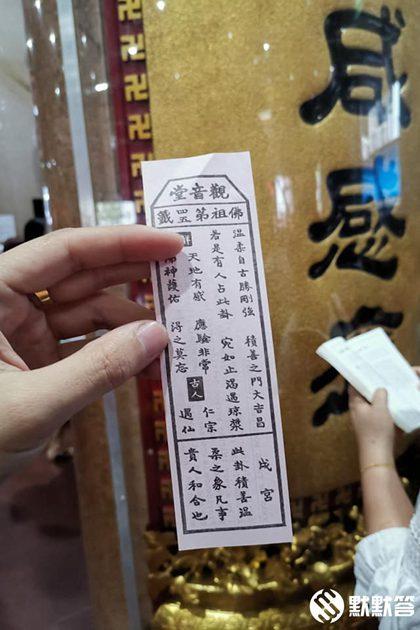 咸感
觀音堂
佛祖第四五籤
溫柔自古勝剛強 積善之門大吉昌
若是有人占此卦 宛如止渴遇瓊漿
天地有感 應驗非常
佛神護佑 得之莫忘
古人 仁宗
遇仙
戌宮
此卦積善溫
柔之象凡事
貴人和合也
默默答